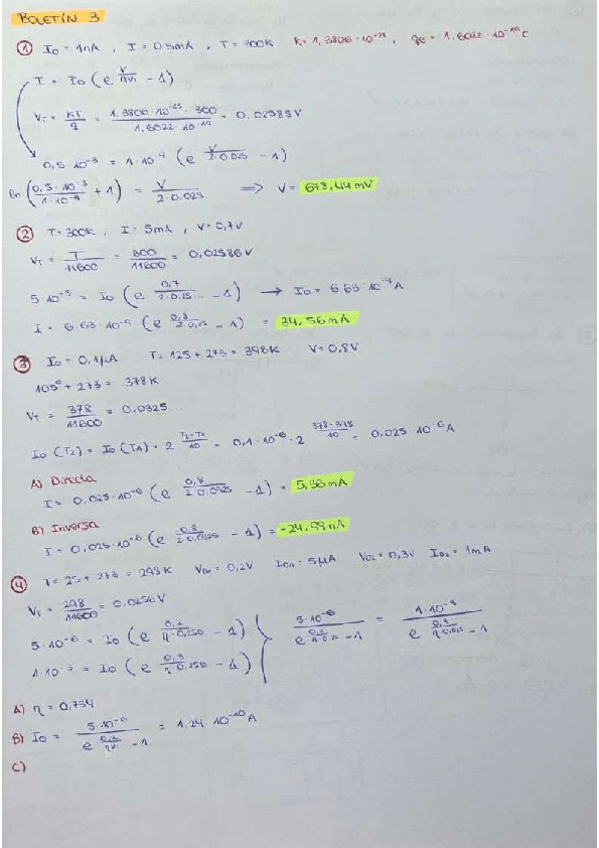 BOLETÍN 3
① I₀ = 1nA , I = 0.5mA , T = 300K K = 1,3806·10⁻²³ , qe = 1,6022·10⁻¹⁹ C
I = I₀ (e^(V/ηVt) - 1)
V_T = KT/q = 1,3806·10⁻²³ · 300 / 1,6022·10⁻¹⁹ = 0,02585V
0,5·10⁻³ = 1·10⁻⁹ (e^(V/2·0.025) - 1)
ln (0,5·10⁻³/1·10⁻⁹ + 1) = V/2·0.025 ⟹ V = 678,44mV
② T = 300K , I = 5mA , V = 0,7V
V_T = T/11600 = 300/11600 = 0,02586V
5·10⁻³ = I₀ (e^(0,7/2·0,25...) - 1) → I₀ = 6.63·10⁻⁹A
I = 6.63·10⁻⁹ (e^(0,8/2·0,25) - 1) = 34,56mA
③ I₀ = 0.1μA T = 125 + 273 = 398K V = 0,8V
105° + 273 = 378K
V_T = 378/11600 = 0.0325...
I₀ (T₂) = I₀ (T₁) · 2^((T₂-T₁)/10) = 0,1·10⁻⁶ · 2^((378-398)/10) = 0,025·10⁻⁶A
A) Directa
I = 0,025·10⁻⁶ (e^(0,8/2·0.0325) - 1) = 5,38mA
B) Inversa
I = 0,025·10⁻⁶ (e^(-0,8/2·0.0325) - 1) = -24,99nA
④ T = 25 + 273 = 298K V_D1 = 0,2V I_D1 = 5μA V_D2 = 0,3V I_D2 = 1mA
V_T = 298/11600 = 0.0256V
5·10⁻⁶ = I₀ (e^(0,2/η·0,256) - 1)
1·10⁻³ = I₀ (e^(0,3/η·0,256) - 1)
5·10⁻⁶ / e^(0,2/η·0,025) - 1 = 1·10⁻³ / e^(0,3/η·0,025) - 1
A) η = 0,734
B) I₀ = 5·10⁻⁶ / e^(0,2/ηVt) - 1 = 1,24·10⁻¹⁰A
C)